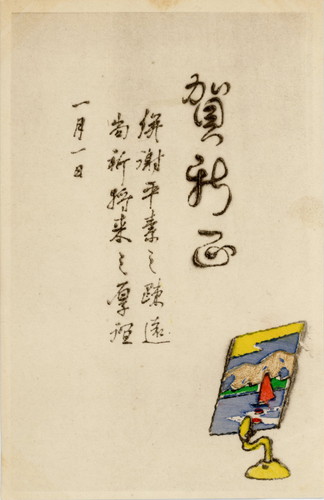 賀新正
併謝平素之疎遠
尚祈将来之厚
一月一日